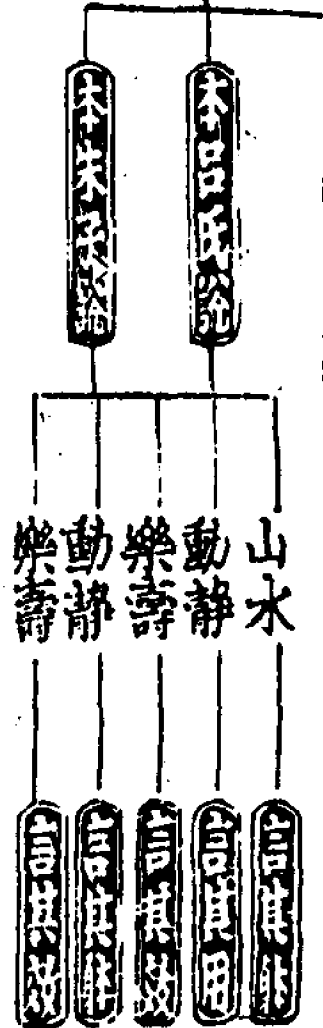 本呂氏論
本朱氏論
山水
動静
樂壽
動静
樂壽
言其體
言其用
言其效
言其體
言其效